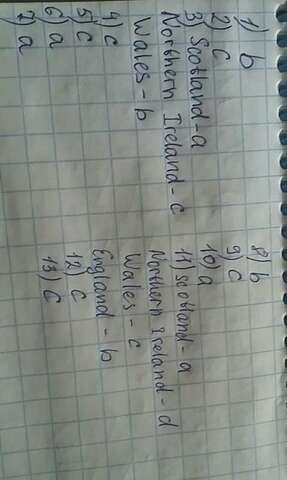 1) b
2) c
3) Scotland - a
Northern Ireland - c
Wales - b
4) c
5) c
6) a
7) a
8) b
9) c
10) a
11) Scotland - a
Northern Ireland - d
Wales - c
England - b
12) c
13) c